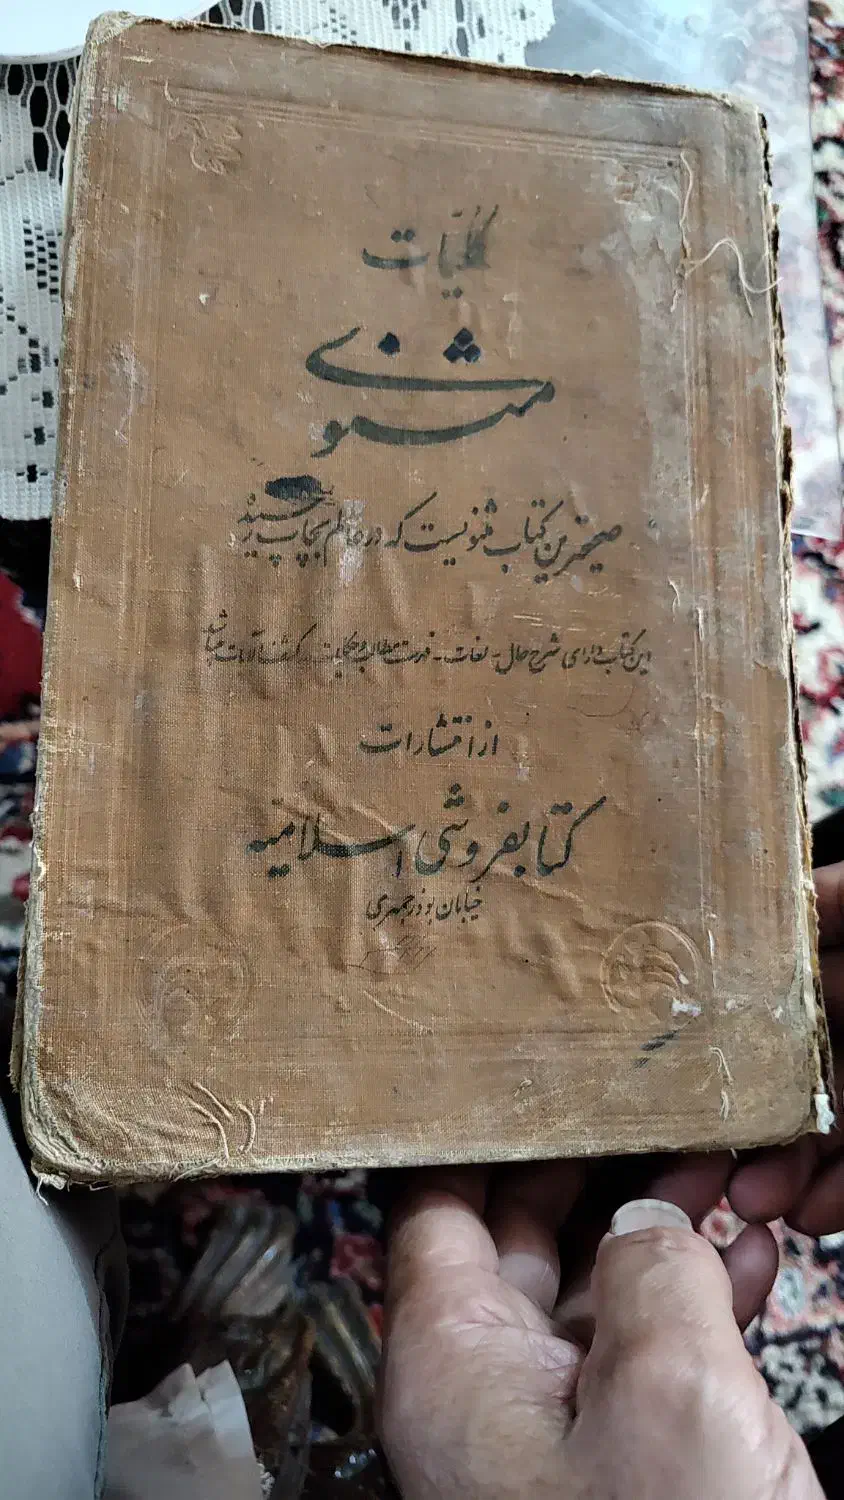 کلیات
مثنوی
صحیحترین کتاب مثنویست که در عالم بچاپ رسیده
این کتاب دارای شرح حال - لغات - فهرست مطالب و حکایات - کشف الابیات میباشد
از انتشارات
کتابفروشی اسلامیه
خیابان بوذرجمهری